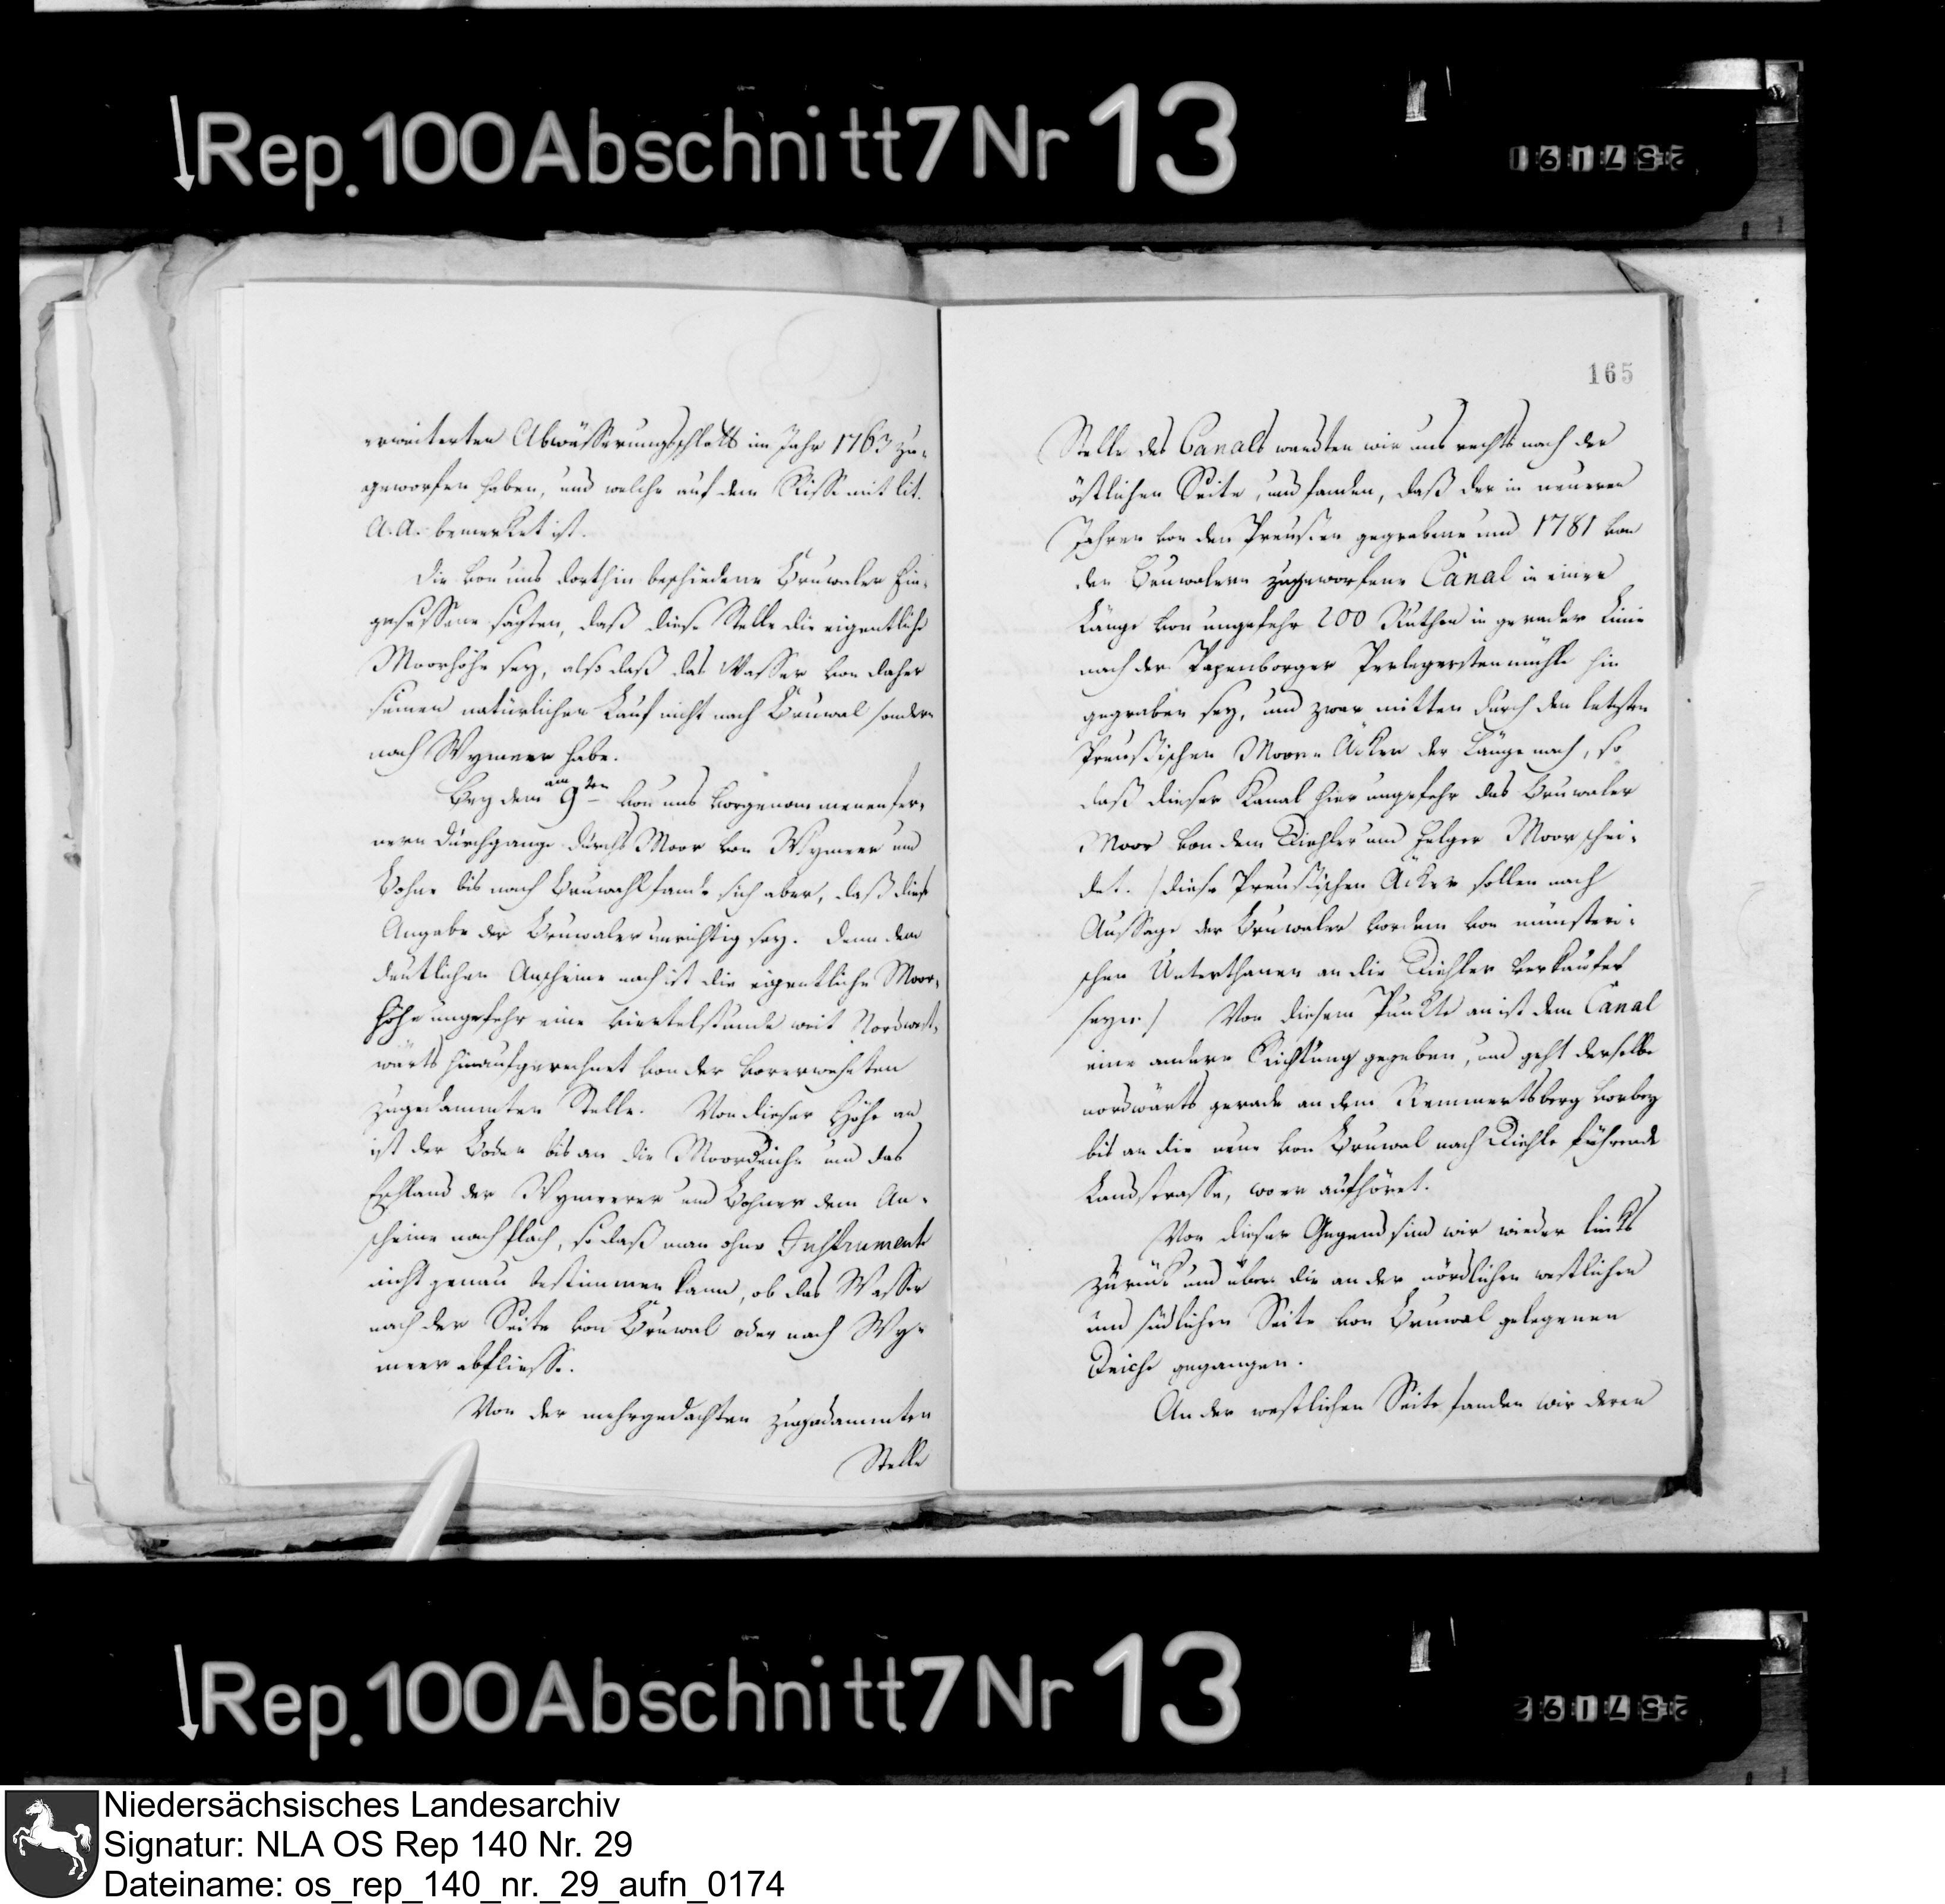 Rep. 100 Abschnitt 7 Nr 13
257191
erweiterten Abwässerungsschlott im Jahr 1763 zu-
geworfen haben, und welche auf dem Risse mit lit.
A. A. bemerket ist.
Die von uns dorthin beschiedene Bruwaler Ein-
gesessene sagten, daß diese Stelle die eigentliche
Moorhöhe sey, also daß das Wasser von daher
seinen natürlichen Lauf nicht nach Bruwal sondern
nach Wymeer habe.
Bey dem am 9ten von uns vorgenommenen fer-
nern Durchgange durchs Moor von Wymeer und
Bohne bis nach Bruwahl fande sich aber, daß diese
Angabe der Bruwaler unrichtig sey. Denn dem
deutlichen Anscheine nach ist die eigentliche Moor-
höhe ungefehr eine viertelstunde weit Nordwest-
wärts hinaufgerechnet von der vorerwehnten
zugedammten Stelle. Von dieser Höhe an
ist der Boden bis an die Moordeiche und das
Eschland der Wymeerer und Bohner dem An-
scheine nach flach, so daß man ohne Instrumente
nicht genau bestimmen kann, ob das Wasser
nach der Seite von Bruwal oder nach Wy-
meer abfliesse.
Von der mehrgedachten zugedammten
Stelle
165
Stelle des Canals wendten wir uns rechts nach der
östlichen Seite, und fanden, daß der in neueren
Jahren von den Preußen gegrabene und 1781 von
den Bruwalern zugeworfene Canal in einer
Länge von ungefehr 200 Ruthen in gerader Linie
nach der Papenborger Perlegerstenmühle hin
gegraben sey, und zwar mitten durch den letzten
Preußischen Moor-Acker der Länge nach, so
daß dieser Kanal hier ungefehr das Bruwaler
Moor von dem Diehler und Moor schei-
det. (diese Preußischen Äcker sollen nach
Aussage der Bruwaler vordem von münsteri-
schen Unterthanen an die Diehler verkaufet
seyn.) Von diesem Punkte an ist dem Canal
eine andere Richtung gegeben, und geht derselbe
nordwärts gerade an dem Remmertsberg vorbey
bis an die neue von Bruwal nach Diehle führende
Landstrasse, wo er aufhöret.
Von dieser Gegend sind wir wieder links
zurück und über die an der nördlichen westlichen
und südlichen Seite von Bruwal gelegenen
Deiche gegangen.
An der westlichen Seite fanden wir deren
Rep. 100 Abschnitt 7 Nr 13
257192
Niedersächsisches Landesarchiv
Signatur: NLA OS Rep 140 Nr. 29
Dateiname: os_rep_140_nr._29_aufn_0174